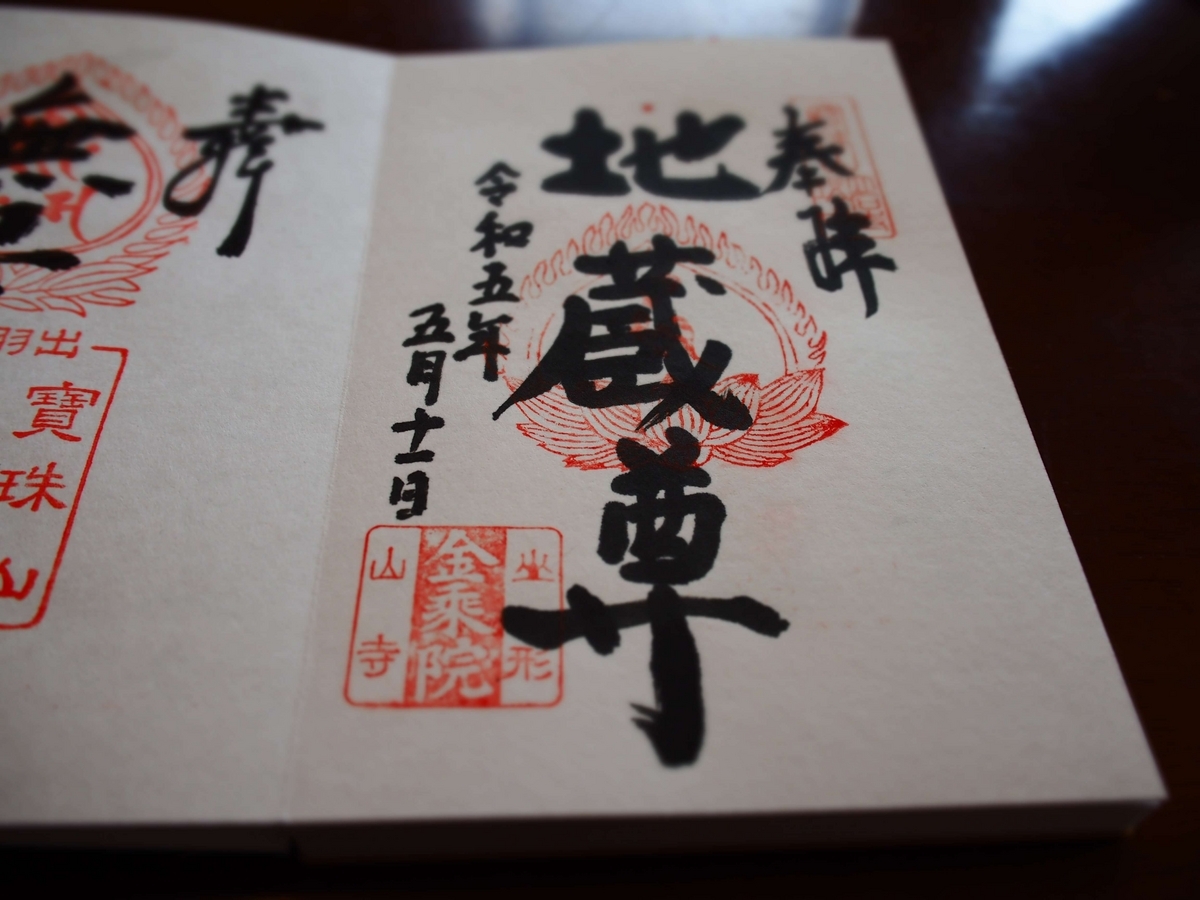 奉拝
地蔵尊
令和五年
五月十一日
山形
金乗院
山寺
奉
無
出羽
寶珠山